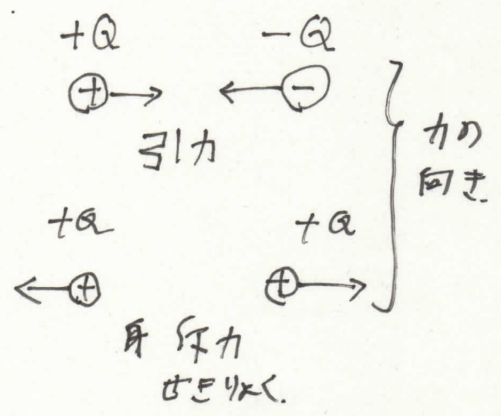 +Q −Q
+ −
引力
力の
向き
+Q +Q
+ +
斥力
せきりょく.